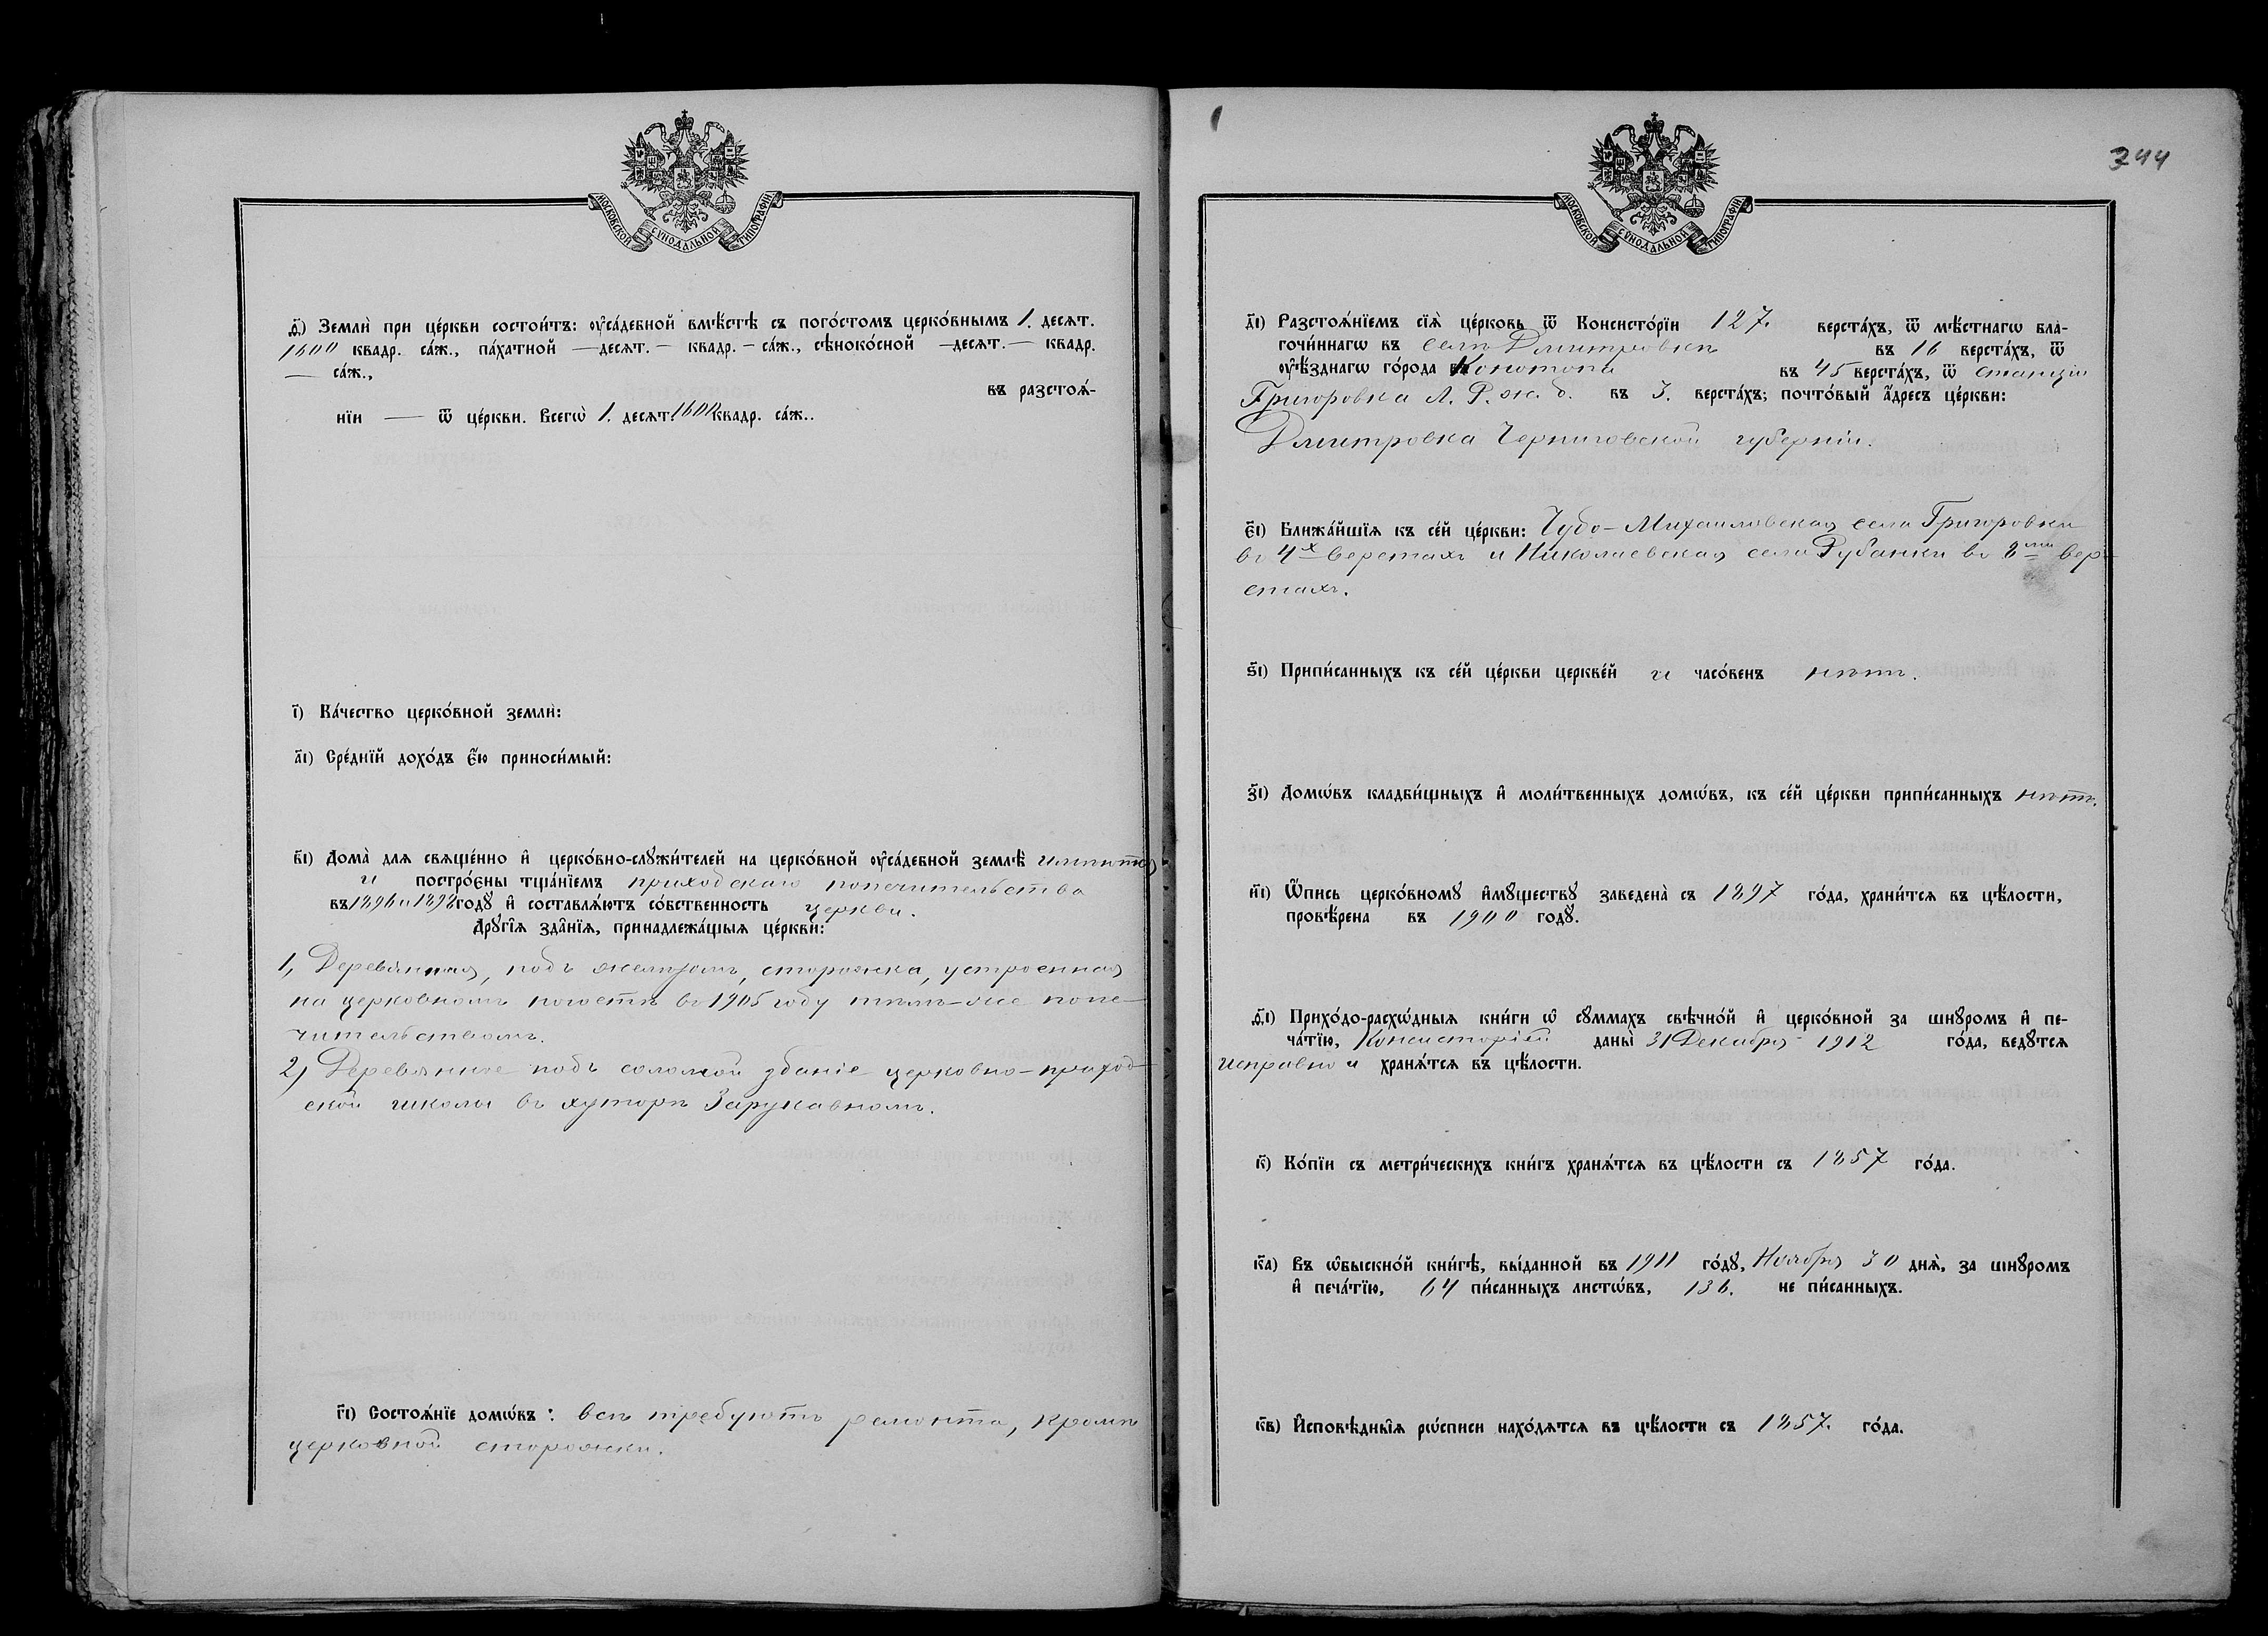 МОСКОВСКОЙ СѴНОДАЛЬНОЙ ТИПОГРАФІИ.
ѳ҃) Землѝ при це́ркви состои́тъ: ᲂу҆са́дебной вмѣ́стѣ съ пого́стомъ церко́внымъ 1. десѧт.
1600 квадр. са́ж., па́хатной — десѧт. — квадр. — са́ж., сѣноко́сной — десѧт. — квадр.
— са́ж.,
въ разстоѧ́-
нїи — ѿ це́ркви. Всегѡ̀ 1. десѧт. 1600 квадр. са́ж..
і҃) Ка́чество церко́вной землѝ:
а҃і) Сре́днїй дохо́дъ є҆́ю приноси́мый:
в҃і) Дома̀ длѧ свѧще́нно и҆ церко́вно-слꙋжи́телей на церко́вной ᲂу҆са́дебной землѣ̀ имѣются
и постро́єны тща́нїемъ приходскаго попечительства
въ 1896 и 1898 годꙋ̀ и҆ составлѧ́ютъ со́бственность церкви.
Дрꙋгі̑ѧ зда̑нїѧ, принадлежа́щыѧ це́ркви:
1, Деревянная, подъ желѣзомъ, сторожка, устроенная
на церковномъ погостѣ въ 1905 году тѣмъ-же попе-
чительствомъ.
2, Деревянное подъ соломой зданіе церковно-приход-
ской школы въ хуторѣ Зарукавномъ.
г҃і) Состоѧ́нїе домѡ́въ: всѣ требуютъ ремонта, кромѣ
церковной сторожки.
344
МОСКОВСКОЙ СѴНОДАЛЬНОЙ ТИПОГРАФІИ.
д҃і) Разстоѧ́нїемъ сїѧ̀ це́рковь ѿ Консисто́рїи 127. верста́хъ, ѿ мѣ́стнагѡ бла-
гочи́ннагѡ въ селѣ Дмитровкѣ въ 16 верста́хъ, ѿ
ᲂу҆ѣ́зднагѡ го́рода Конотопа въ 45 верста́хъ, ѿ станціи
Григоровка Л. Р. ж. д. въ 3. верста́хъ; почто́вый а҆́дресъ це́ркви:
Дмитровка Черниговской губерніи.
є҃і) Ближа́йшїѧ къ се́й це́ркви: Чудо-Михаиловская села Григоровки
въ 4х верстахъ и Николаевская села Рубанки въ 8ми вер-
стахъ.
ѕ҃і) Припи́санныхъ къ се́й це́ркви церкве́й и часо́венъ нѣтъ.
з҃і) Домѡ́въ кладби́щныхъ и҆ моли́твенныхъ домѡ́въ, къ се́й це́ркви припи́санныхъ нѣтъ.
и҃і) Ѻ҆́пись церко́вномꙋ и҆мꙋ́ществꙋ заведена̀ съ 1897 го́да, храни́тсѧ въ цѣ́лости,
провѣ́рена въ 1900 годꙋ̀.
ѳ҃і) Прихо́до-расхѡ́дныѧ кни́ги ѡ҆ сꙋ́ммахъ свѣчно́й и҆ церко́вной за шнꙋро́мъ и҆ пе-
ча́тїю, Консисторіей даны̀ 31 Декабря 1912 го́да, ведꙋ́тсѧ
исправно и хранѧ́тсѧ въ цѣ́лости.
к҃) Ко́пїи съ метри́ческихъ кни́гъ хранѧ́тсѧ въ цѣ́лости съ 1857 го́да.
к҃а) Въ ѡ҆быскно́й кни́гѣ, вы́данной въ 1911 го́дꙋ, Ноября 30 днѧ̀, за шнꙋро́мъ
и҆ печа́тїю, 64 пи́санныхъ листѡ́въ, 136. не пи́санныхъ.
к҃в) И҆сповѣ́дныѧ рѡ́списи нахо́дѧтсѧ въ цѣ́лости съ 1857. го́да.